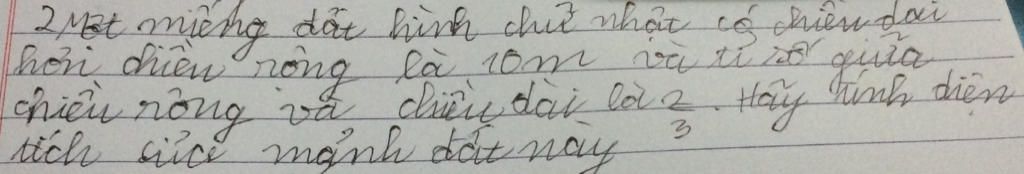 2, Một miếng đất hình chữ nhật có chiều dài
hơn chiều rộng là 10m và tỉ số giữa
chiều rộng và chiều dài là 2/3. Hãy tính diện
tích của mảnh đất này